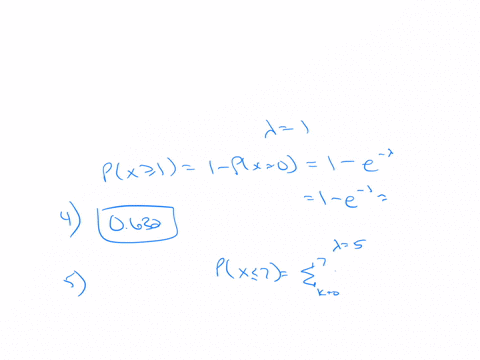 λ = 1
P(x ≥ 1) = 1 - P(x=0) = 1 - e^{-λ}
= 1 - e^{-1} =
4) 0.632
λ = 5
5) P(x ≤ 7) = Σ_{k=0}^{7}